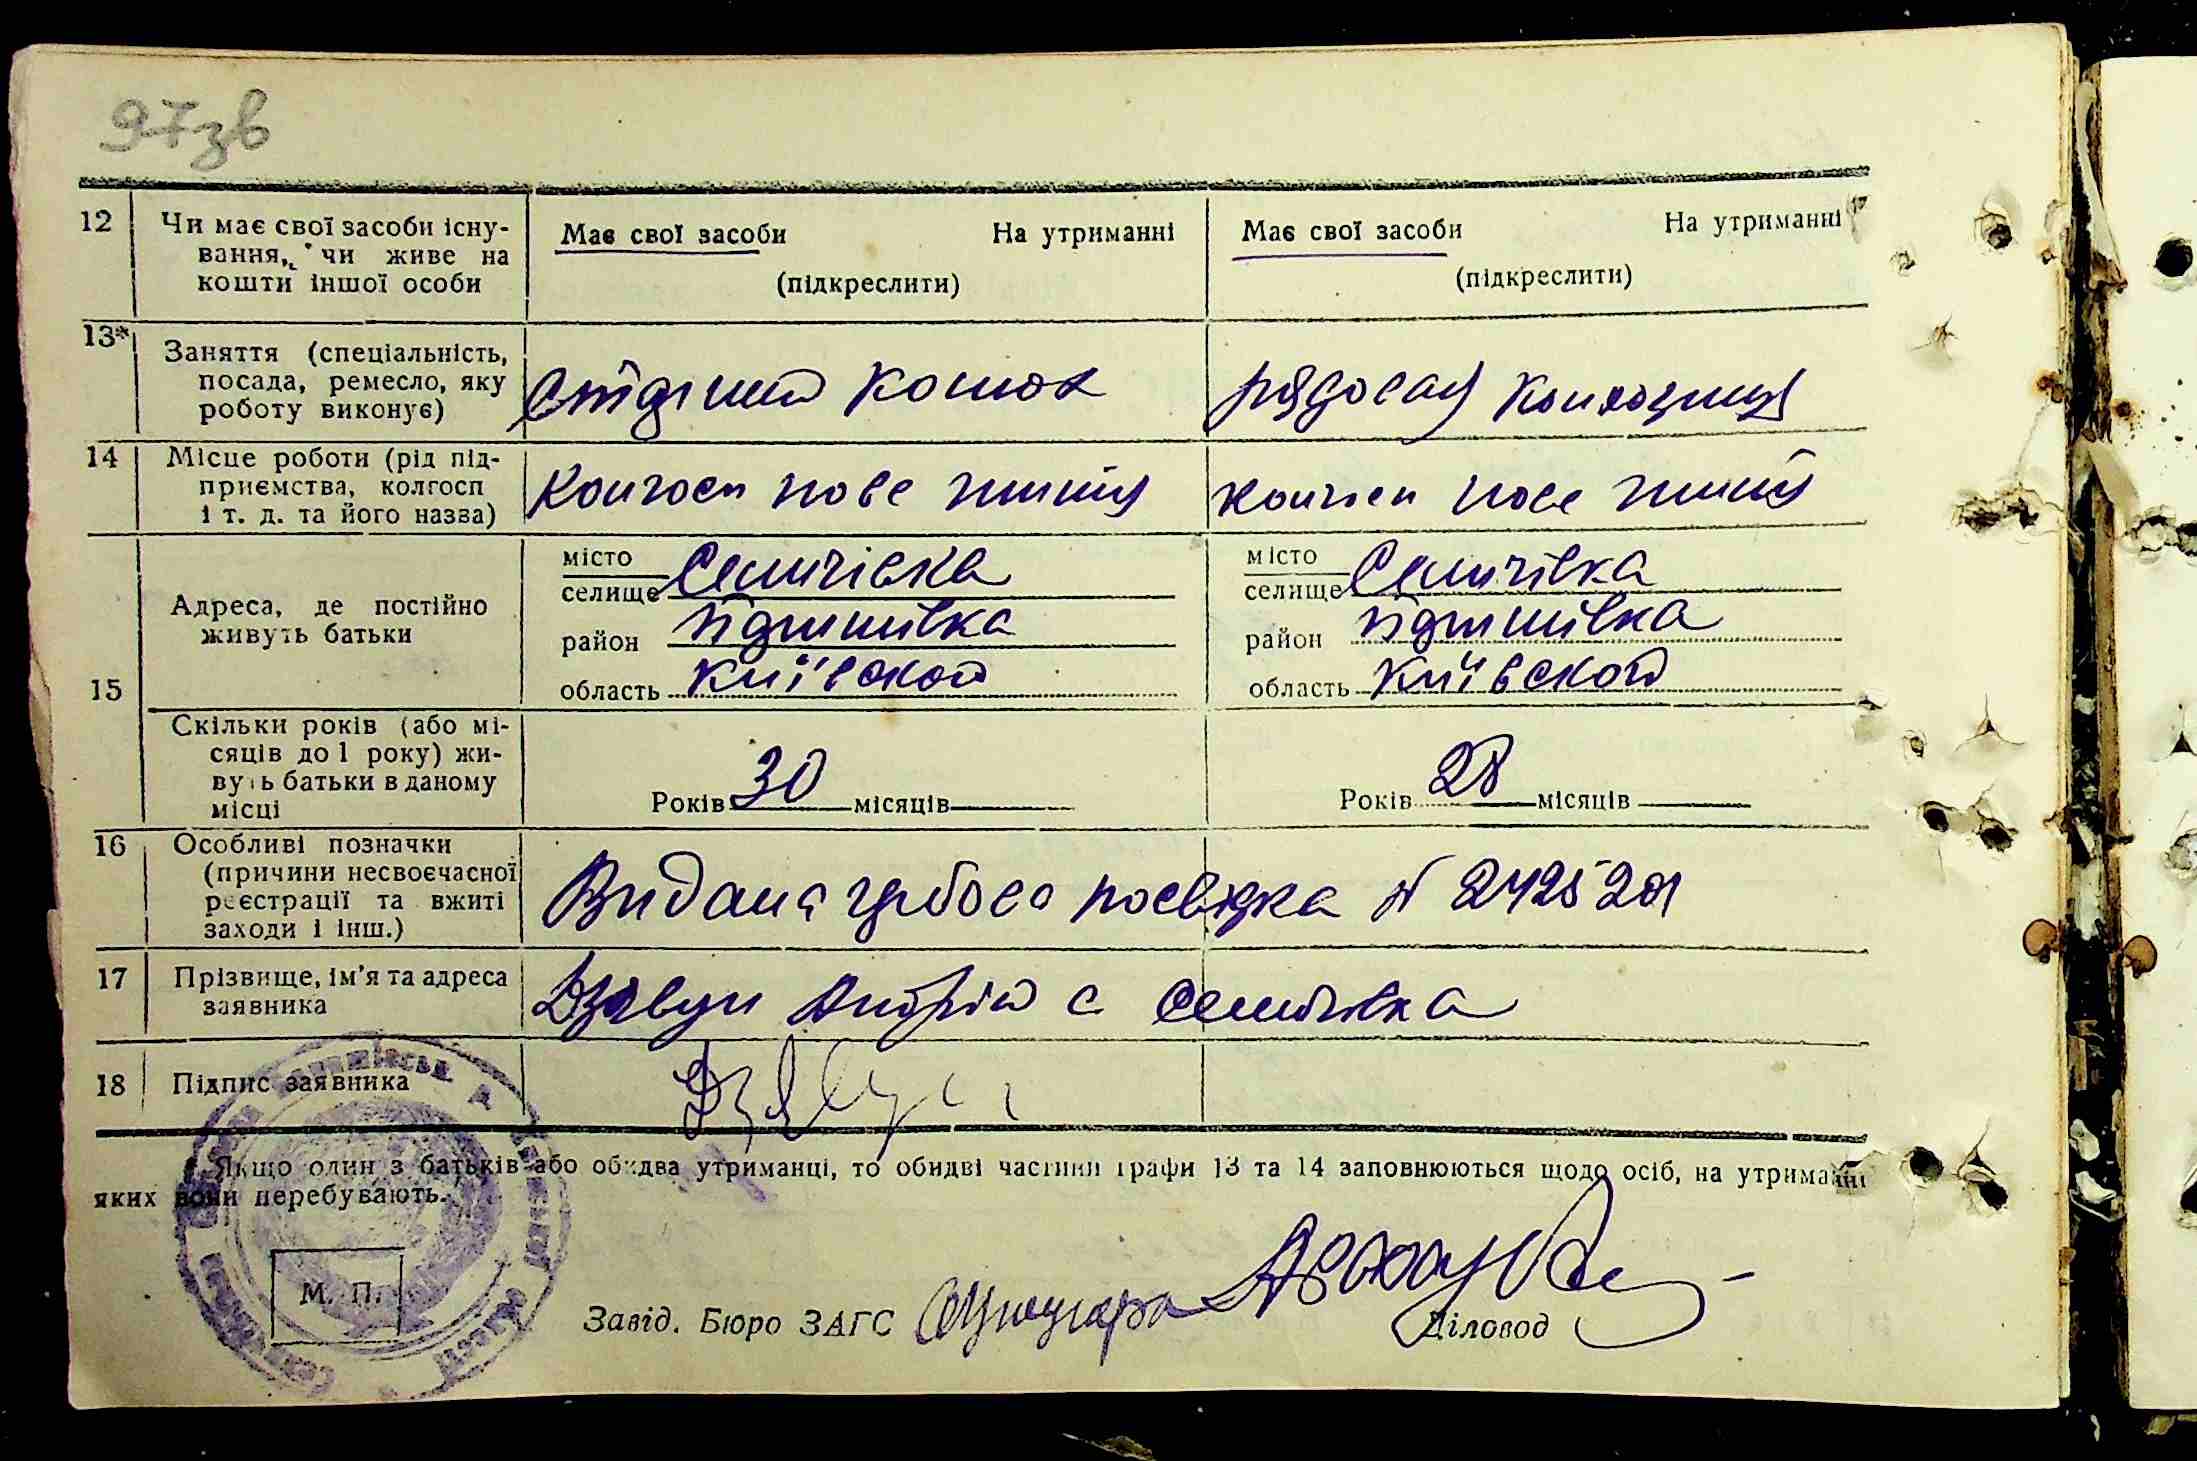 97зв
12 Чи має свої засоби існу-
вання, чи живе на
кошти іншої особи
Має свої засоби На утриманні
(підкреслити)
Має свої засоби На утриманні
(підкреслити)
13* Заняття (спеціальність,
посада, ремесло, яку
роботу виконує)
конюх
рядовая колхозниця
14 Місце роботи (рід під-
приємства, колгосп
і т. д. та його назва)
Колгосп нове життя
колгосп нове життя
15 Адреса, де постійно
живуть батьки
місто
селище Семичівка
район
область Київской
місто
селище Семичівка
район
область Київской
Скільки років (або мі-
сяців до 1 року) жи-
вуть батьки в даному
місці
Років 30 місяців
Років 28 місяців
16 Особливі позначки
(причини несвоєчасної
реєстрації та вжиті
заходи і інш.)
Видана посвідка №
17 Прізвище, ім'я та адреса
заявника
Дзявун Андрій с Семичівка
18 Підпис заявника
Якщо один з батьків або обидва утриманці, то обидві частини графи 13 та 14 заповнюються щодо осіб, на утриманні
яких вони перебувають.
М. П.
Завід. Бюро ЗАГС
Діловод